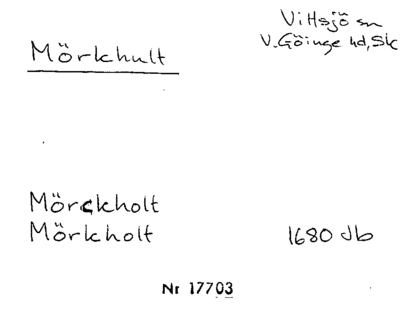 Mörkhult
Vittsjö sn
V. Göinge hd, Sk
Mörckholt
Mörkholt 1680 Jb
Nr 17703